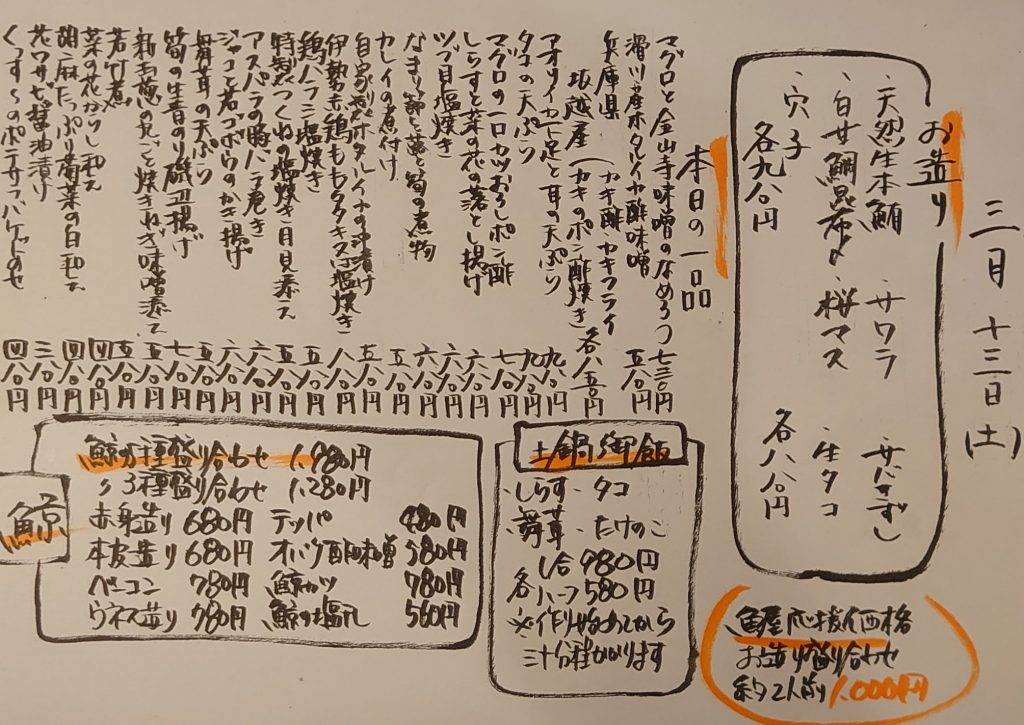 三月十三日(土)
お造り
・天然生本鮪 ・サワラ ・サバきずし
・白甘鯛昆布〆 ・桜マス ・生タコ
・穴子 各八八〇円
各九八〇円
本日の一品
マグロと金山寺味噌のなめろう 七三〇円
滑川産ホタルイカ酢味噌 五八〇円
兵庫県 坂越産 (カキ酢 カキフライ
(カキのポン酢焼き 各八五〇円
アオリイカ下足と耳の天ぷら 九八〇円
タコの天ぷら 九八〇円
マグロの一口カツおろしポン酢 七八〇円
しらすと菜の花の落とし揚げ 六八〇円
ツブ貝塩焼き 六八〇円
なまり節と蕗と筍の煮物 六八〇円
カレイの煮付け 五八〇円
自家製ホタルイカの沖漬け 五八〇円
伊勢赤鶏ももタタキ又は塩焼き 八八〇円
鶏ハラミ塩焼き 五八〇円
特製つくねの塩焼き目見添え 五八〇円
アスパラの豚バラ巻き 六八〇円
ジャコと若ゴボウのかき揚げ 六八〇円
舞茸の天ぷら 六八〇円
筍の生青のり磯辺揚げ 七八〇円
新玉葱の丸ごと焼きねぎ味噌添え 五八〇円
若竹煮 五八〇円
菜の花からし和え 四八〇円
胡麻たっぷり菊菜の白和え 四八〇円
花ワサビ醤油漬け 三八〇円
くっすーのポテサラバゲットのせ 四八〇円
鯨
鯨5種盛り合わせ 1,980円
〃3種盛り合わせ 1,280円
赤身造り 680円 テッパ 480円
本皮造り 680円 オバケ酢味噌 580円
ベーコン 780円 鯨カツ 780円
ウネス造り 780円 鯨の塩 560円
土鍋御飯
・しらす ・タコ
・舞茸 ・たけのこ
一合 980円
各ハーフ 580円
※作り始めてから
三十分程かかります
魚屋応援価格
お造り盛り合わせ
約2人前 1,000円